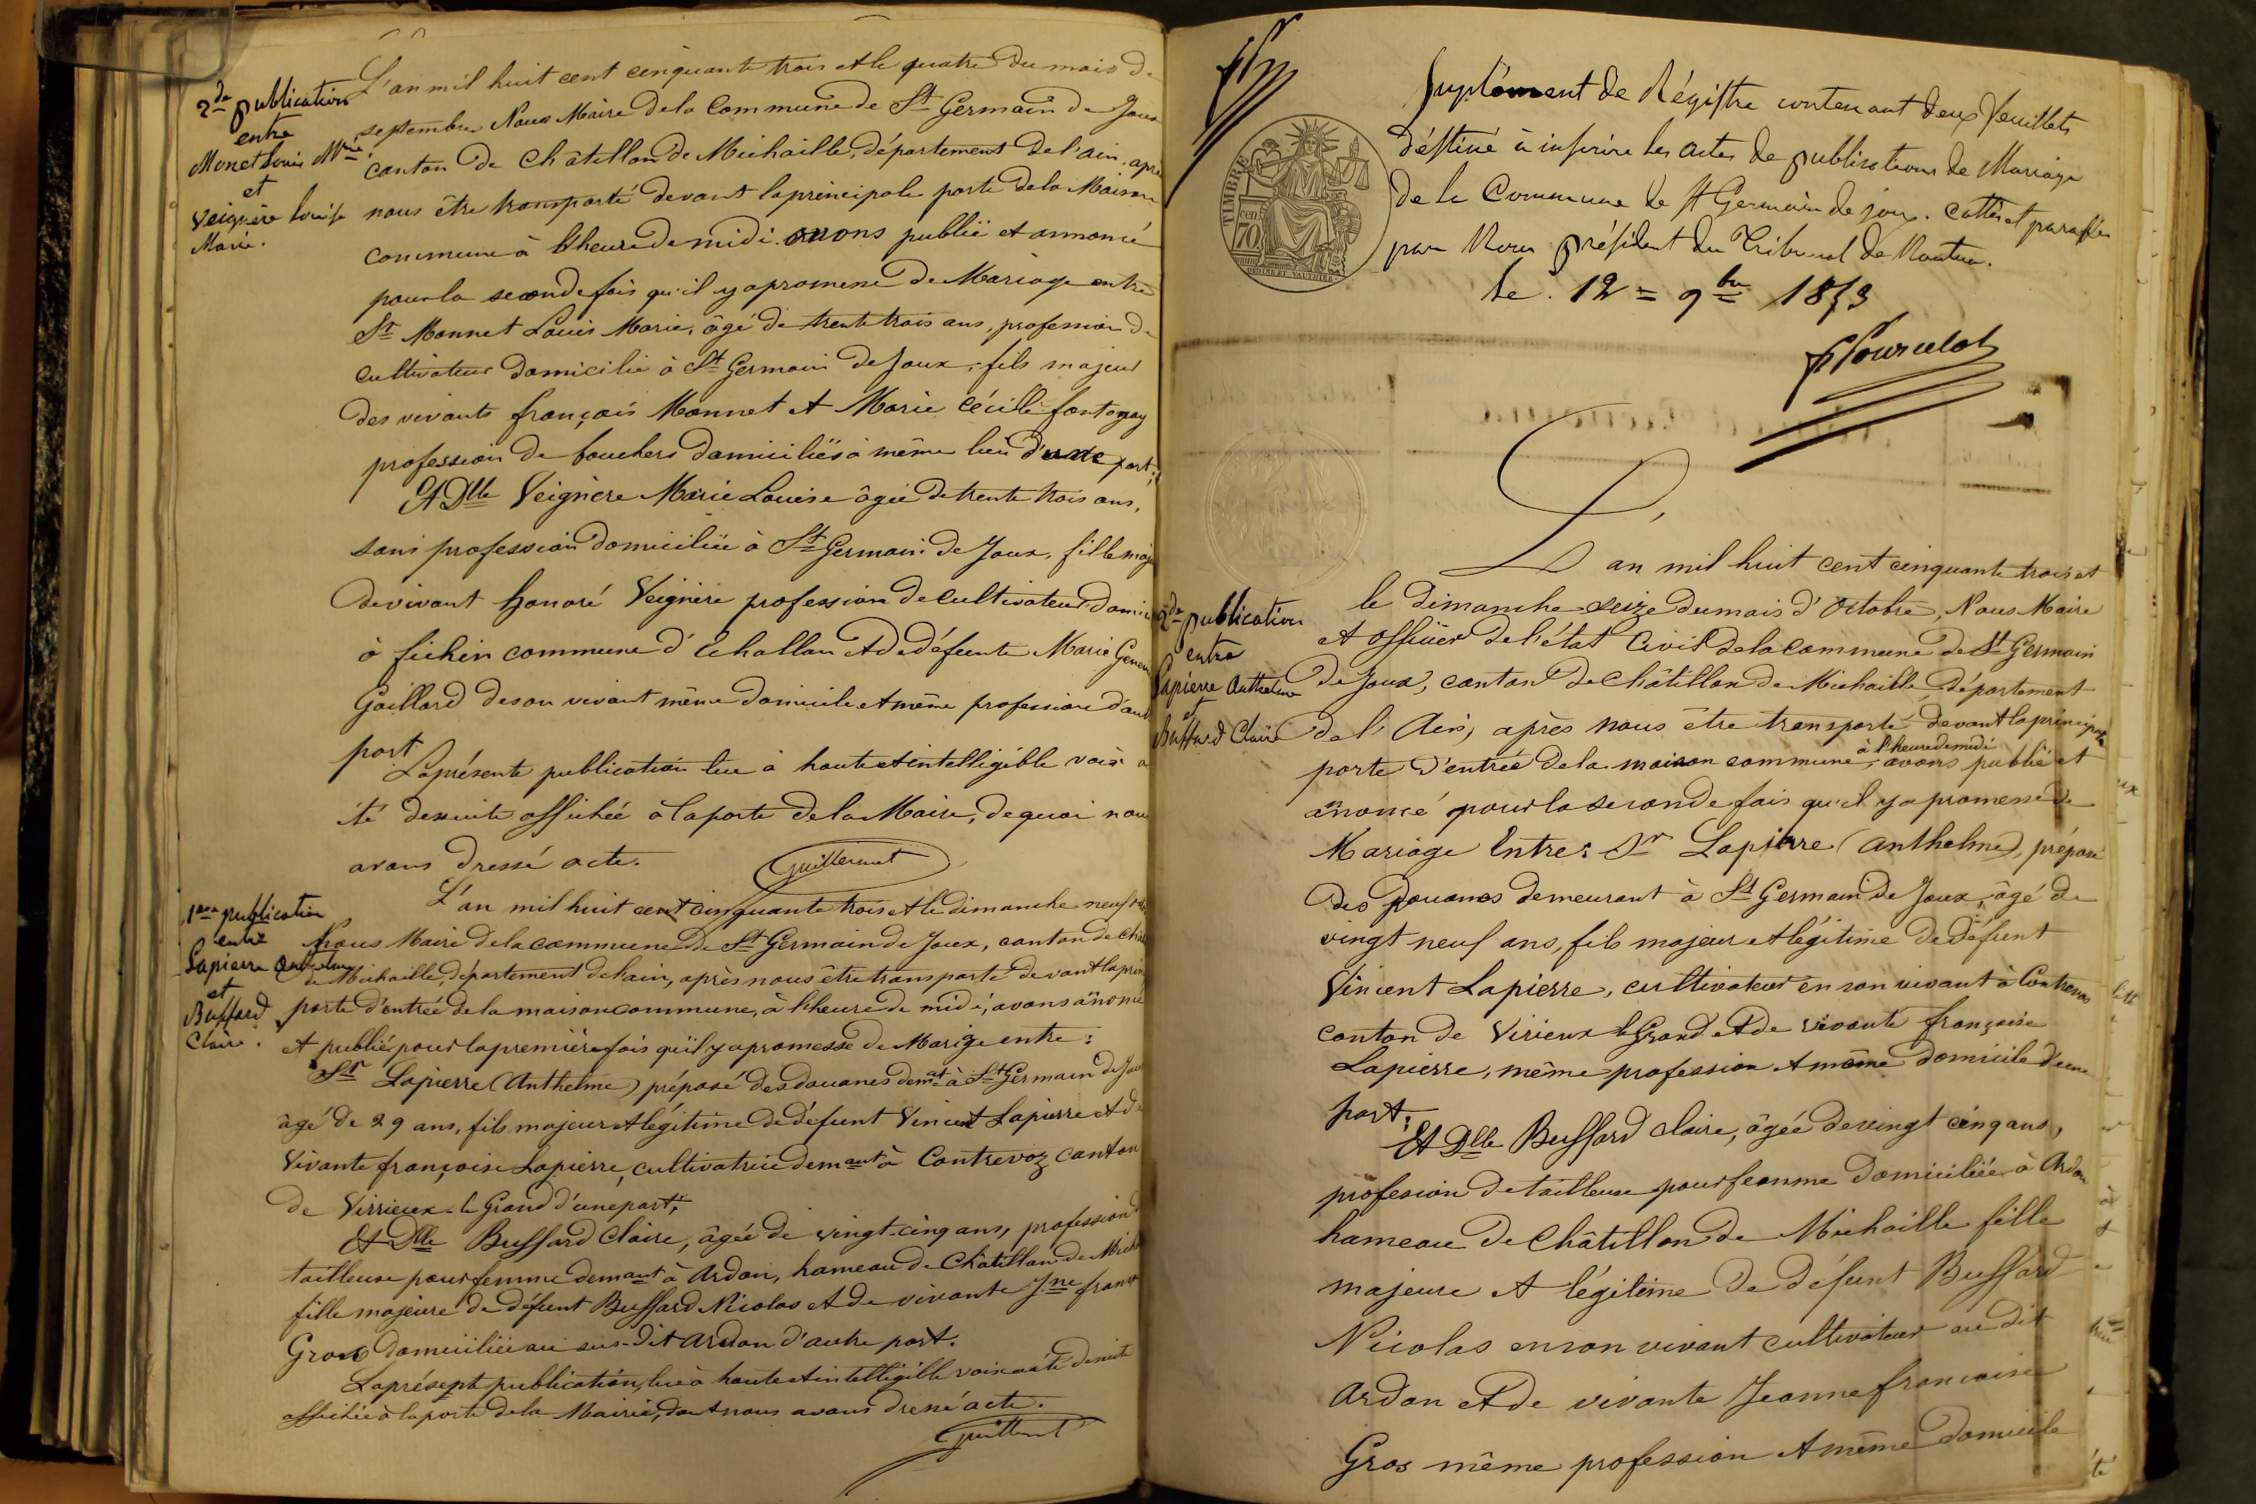 2de publication
entre
Monet Louis Mrie
et
Veignère Louise
Marie.
L'an mil huit cent cinquante trois et le quatre du mois de
septembre Nous Maire de la Commune de St Germain de Joux
canton de Châtillon de Michaille, département de l'ain, après
nous être transporté devant la principale porte de la Maison
commune à l'heure de midi avons publié et annoncé
pour la seconde fois qu'il y a promesse de Mariage entre
Sr Monnet Louis Marie, âgé de trente trois ans, profession de
cultivateur domicilié à St Germain de Joux, fils majeur
des vivants françois Monnet et Marie Cécile
profession de bouchers domiciliés à même lieu d'une part;
Et Dlle Veignère Marie Louise âgée de trente trois ans,
sans profession domiciliée à St Germain de Joux, fille maj
de vivant honoré Veignère profession de cultivateur domi
à commune d'Echallon et de défunte Marie
Gaillard de son vivant même domicile et même profession d'aut
part
La présente publication lue à haute et intelligible voix a
été de suite affichée à la porte de la Mairie, de quoi nous
avons dressé acte.
Guillermet
1ère publication
entre
Lapierre Anthelme
et
Buffard
Claire.
L'an mil huit cent cinquante trois et le dimanche neuf
Nous Maire de la commune de St Germain de Joux, canton de Châ
de Michaille, département de l'ain, après nous être transporté devant la prin
porte d'entrée de la maison commune, à l'heure de midi, avons anoncé
et publié pour la première fois qu'il y a promesse de Marige entre:
Sr Lapierre (Anthelme) préposé des douanes demt à St Germain de Joux
âgé de 29 ans, fils majeur et légitime de défunt Vincent Lapierre et de
Vivante françoise Lapierre, cultivatrice demant à Contrevoz canton
de Virrieux-le Grand d'une part;
Et Dlle Buffard Claire, âgée de vingt-cinq ans, profession d
tailleuse pour femme demant à Ardon, hameau de Châtillon de Mich
fille majeure de défunt Buffard Nicolas et de vivante Jne franç
Gros domiciliée au sus-dit Ardon d'autre part.
La présente publication, lue à haute et intelligible voix a été de suite
affichée à la porte de la Mairie, dont nous avons dressé acte.
Guillermet
Supléement de Régistre contenant deux feuillets
déstiné à inscrire les actes de publications de Mariage
de la Commune de St Germain de joux. cottés et paraflés
par Nous président du Tribunal de Nantua.
le 12 = 9bre 1853
TIMBRE
cent
70
2de publication
entre
Lapierre Anthelme
et
Buffard Claire
L'an mil huit cent cinquante trois et
le dimanche seize du mois d'Octobre, Nous Maire
et Officier de l'état Civil de la commune de St Germain
de Joux, canton de Châtillon de Michaille, département
de l'Ain, après nous être transporté devant la principale
porte d'entrée de la maison commune, à l'heure de midi avons publié et
anoncé pour la seconde fois qu'il y a promesse de
Mariage Entre: Sr Lapierre (Anthelme), préposé
des Douanes demeurant à St Germain de Joux, âgé de
vingt neuf ans, fils majeur et légitime de défunt
Vincent Lapierre, cultivateur en son vivant à Contrevoz
canton de Virieux le Grand et de vivante françoise
Lapierre, même profession et même domicile d'une
part;
Et Dlle Buffard Claire, âgée de vingt cinq ans,
profesion de tailleuse pour femme domiciliée à Ardon
hameau de Châtillon de Michaille fille
majeure et légitime de défunt Buffard
Nicolas en son vivant cultivateur au dit
Ardon et de vivante Jeanne françoise
Gros même profession et même domicile